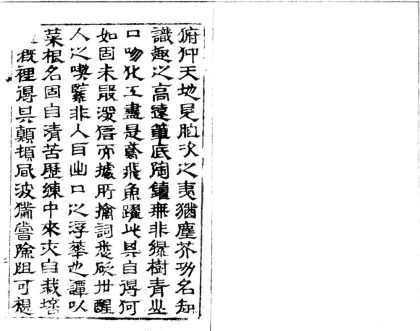 俯仰天地見胸次之夷猶塵芥功名知
識趣之高遠筆底陶鑄無非綠樹青山
口吻化工盡是鳶飛魚躍此其自得何
如固未敢深信而據所摛詞悉砭世醒
人之喫緊非入耳出口之浮華也譚以
菜根名固自清苦歷練中來亦自栽培
溉裡得其顛頓風波備嘗險阻可想